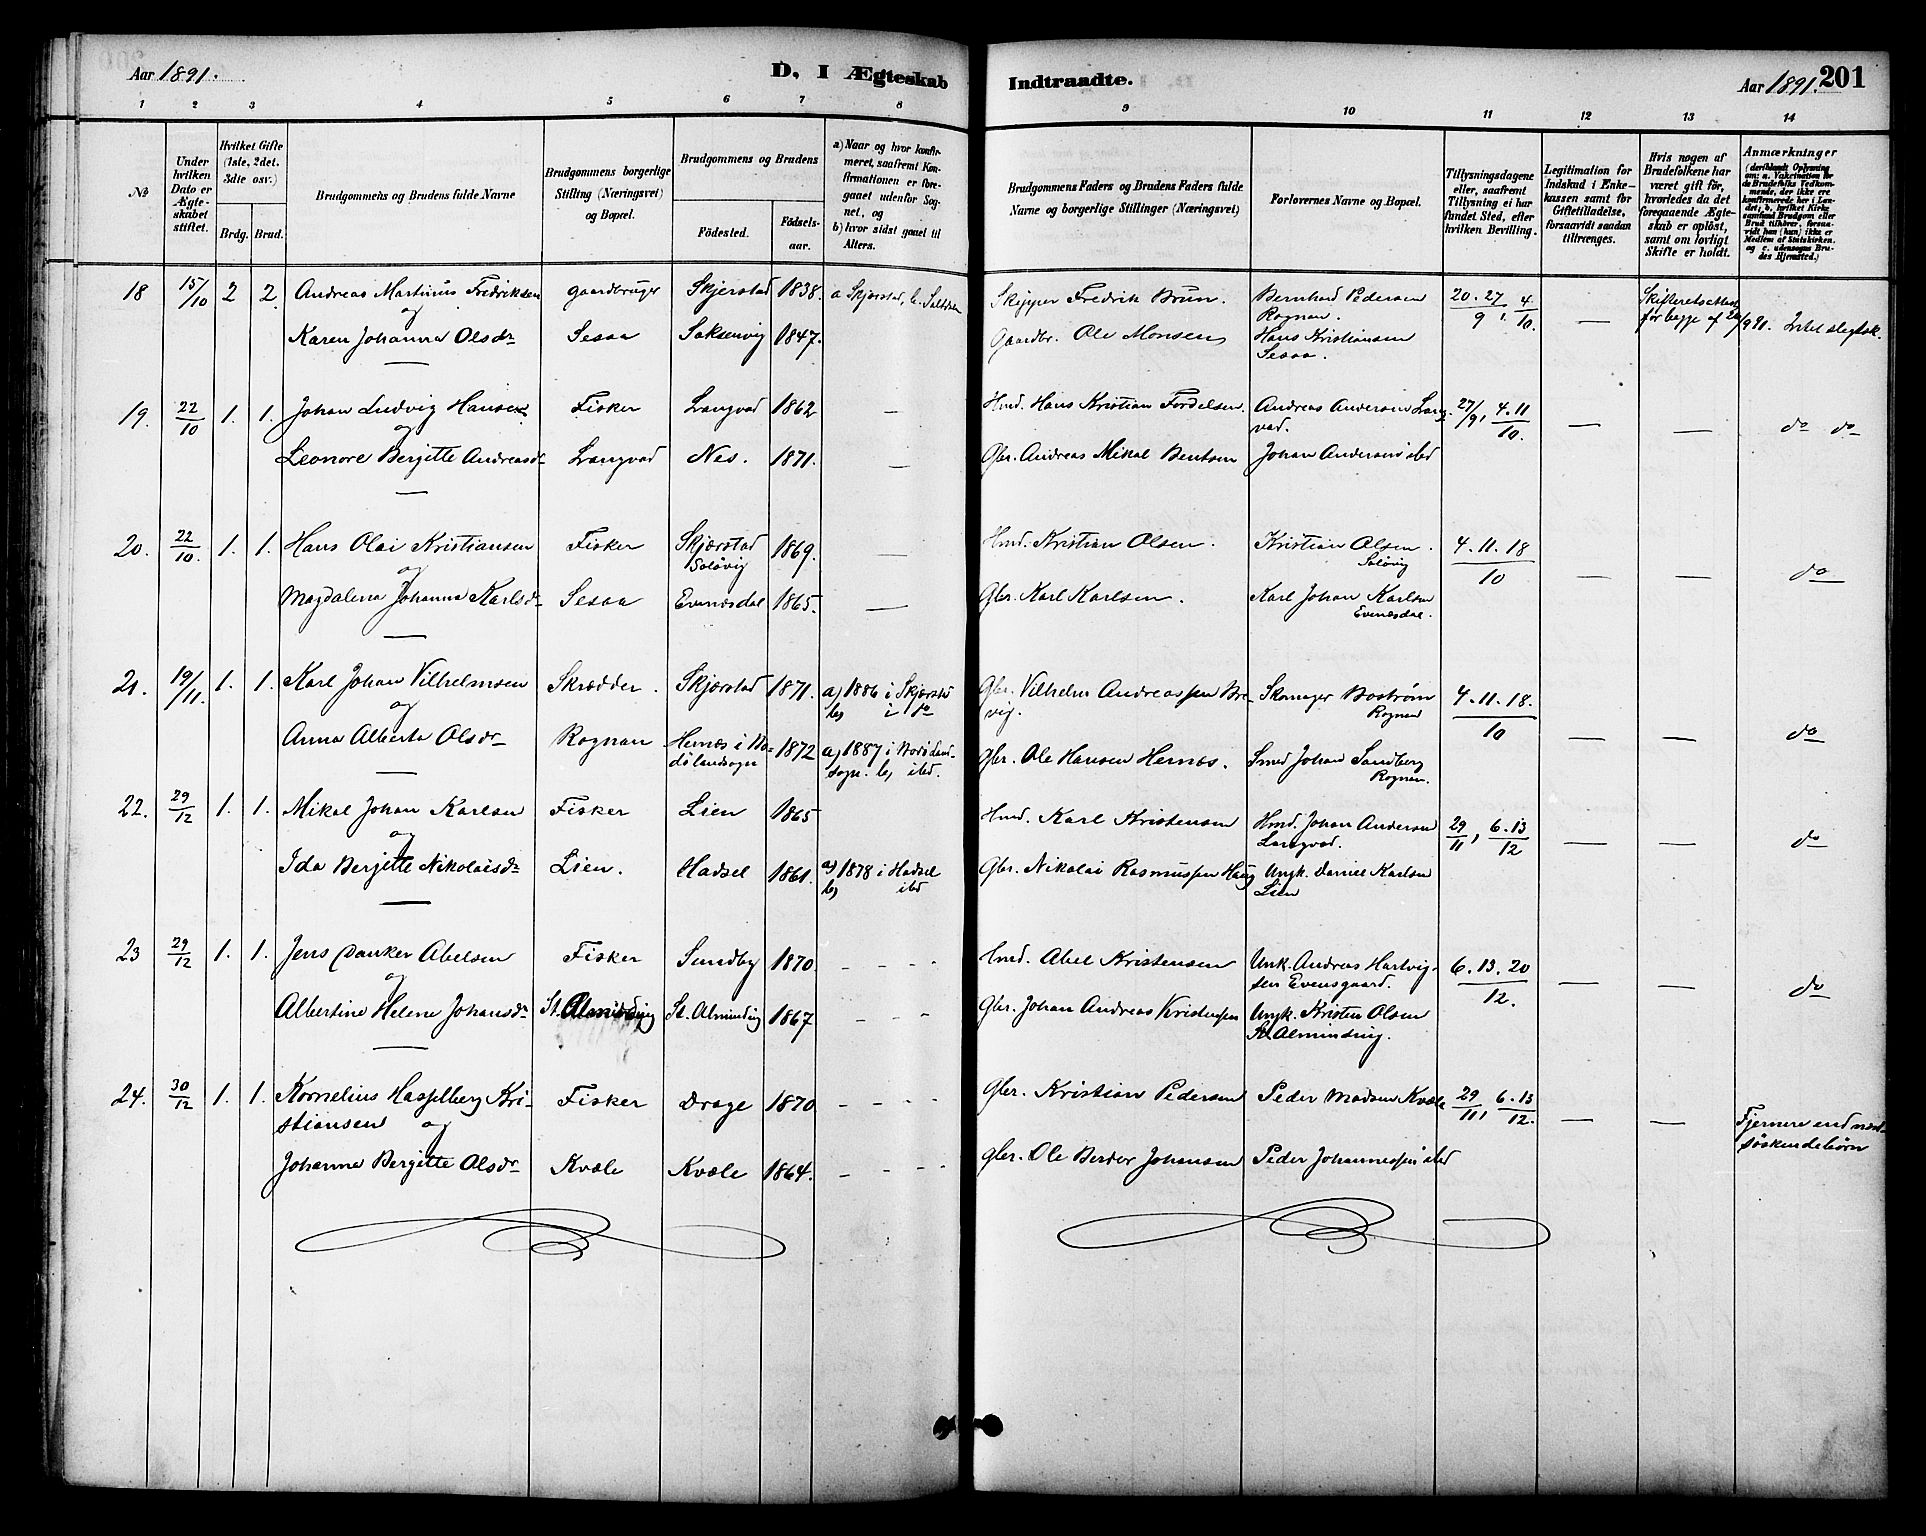 Aar 1891.
D. I Ægteskab
Indtraadte.
Aar 1891.
201
1 2 3 4 5 6 7 8 9 10 11 12 13 14
No
Under hvilken Dato er Ægteskabet stiftet.
Hvilket Gifte (1ste, 2det. 3die osv.)
Brdg. Brud.
Brudgommens og Brudens fulde Navne
Brudgommens borgerlige Stilling (Næringsvei) og Bopæl.
Brudgommens og Brudens
Födested.
Födselsaar.
a) Naar og hvor konfirmeret, saafremt Konfirmationen er foregaaet udenfor Sognet, og
b) hvor sidst gaaet til Alters.
Brudgommens Faders og Brudens Faders fulde Navne og borgerlige Stillinger (Næringsvei)
Forlovernes Navne og Bopæl.
Tillysningsdagene eller, saafremt Tillysning ei har fundet Sted, efter hvilken Bevilling.
Legitimation for Indskud i Enkekassen samt for Giftetilladelse, forsaavidt saadan tiltrænges.
Hvis nogen af Brudefolkene har været gift för, hvorledes da det foregaaende Ægteskab er oplöst, samt om lovligt Skifte er holdt.
Anmærkninger
18 15/10 2 2. Andreas Martinus Fredriksen gaardbruger Skjerstad 1838. a Skjerstad, b. Saltdalen Skipper Fredrik Brun. Bernhard Pedersen Rognan. 20. 27/9, 4/10. — Skifteretsattest for begge af 91. Intet slegtsk.
og
Karen Johanna Olsdr Sesaa Saksenvig 1847. Gaardbr. Ole Monsen Hans Kristiansen Sesaa.
19. 22/10 1. 1. Johan Ludvig Hansen Fisker Langvad 1862 — Hmd. Hans Kristian Fordelsen. Andreas Andersen Langvad. 27/9, 4.11/10. — — do do
og
Leonore Bergitte Andreasdr Langvad Nes. 1871. — Gbr. Andreas Mikal Bentsen Johan Andersen ibd
20. 22/10. 1. 1. Hans Olai Kristiansen Fisker Skjerstad Soløvig 1869. — Hmd. Kristian Olsen. Kristian Olsen. Soløvig 4.11.18/10 — — do
og
Magdalena Johanna Karlsdr Sesaa Evenesdal 1865. — Gbr. Karl Karlsen. Karl Johan Karlsen Evenesdal.
21. 19/11. 1. 1. Karl Johan Vilhelmsen Skrædder. Skjerstad 1871. a) 1886 i Skjerstad b) i do Gbr. Vilhelm Andreassen Brevig. Skomager Boström Rognan 4.11.18./10 — — do
og
Anna Alberta Olsdr Rognan Hernes i Bodölandsogn 1872 a) 1887 i Bodölandsogn. b) ibd. Gbr. Ole Hansen Hernes. Smed Johan Sandberg Rognan.
22. 29/12 1. 1. Mikal Johan Karlsen Fisker Lien 1865 Hmd. Karl Kristensen Hmd. Johan Andersen Langvad. 29/11, 6.13/12 — — do
og
Ida Bergitte Nikolaisdr Lien. Hadsel 1861. a) 1878 i Hadsel b) ibd Gbr. Nikolai Rasmussen Haug Ungk. Daniel Karlsen Lien
23 29/12 1. 1. Jens Danker Abelsen Fisker Sundby 1870. - - - Hmd. Abel Kristensen Unk. Andreas Hartvigsen Evensgaard. 6.13.20/12. — — do
og
Albertine Helene Johansdr St. Alminding St. Almindig 1867 - - - Gbr. Johan Andreas Kristensen Ungk. Kristen Olsen St. Alminding.
24. 30/12 1. 1. Kornelius Hasselberg Kristiansen Fisker Drage 1870 - - - Gbr. Kristian Pedersen Peder Madsen Kvæle 29/11, 6.13/12. — — Fjernere end næstsöskendebörn
og
Johanna Bergitte Olsdr Kvæle Kvæle 1864. - - - gbr. Ole Berder Johansen Peder Johannessen ibd